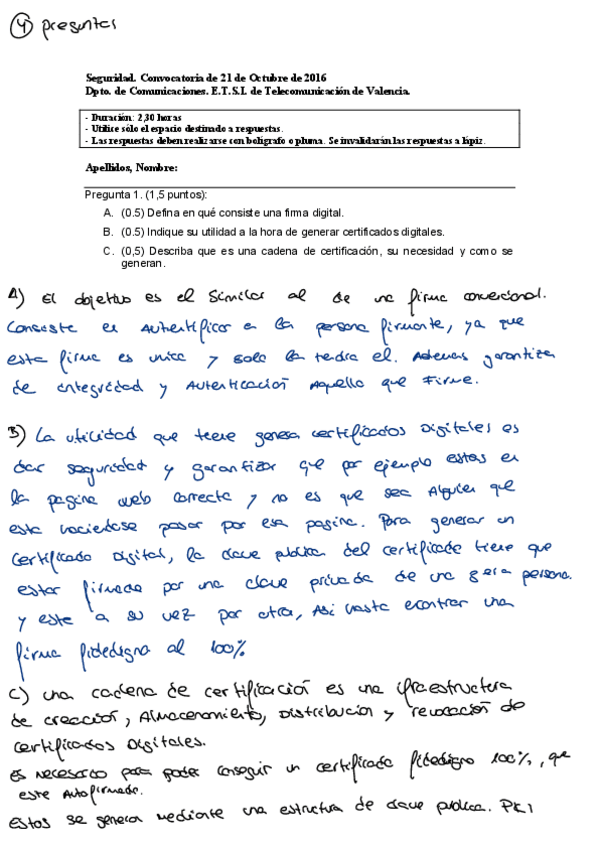 4 preguntas
Seguridad. Convocatoria de 21 de Octubre de 2016
Dpto. de Comunicaciones. E.T.S.I. de Telecomunicación de Valencia.
- Duración: 2,30 horas
- Utilice sólo el espacio destinado a respuestas.
- Las respuestas deben realizarse con bolígrafo o pluma. Se invalidarán las respuestas a lápiz.
Apellidos, Nombre:
Pregunta 1. (1,5 puntos):
A. (0.5) Defina en qué consiste una firma digital.
B. (0.5) Indique su utilidad a la hora de generar certificados digitales.
C. (0,5) Describa que es una cadena de certificación, su necesidad y como se
generan.
A) El objetivo es el similar al de una firma convencional.
Consiste en autentificar a la persona firmante, ya que
esta firma es unica y solo la tendra el. Ademas garantiza
de integridad y Autenticación Aquello que Firme.
B) La utilidad que tiene generar certificados Digitales es
dar seguridad y garantizar que por ejemplo estas en
la pagina web correcta y no es que sea Alguien que
esta haciendose pasar por esa pagina. Para generar un
certificado Digital, la clave publica del certificado tiene que
estar firmada por una clave privada de una persona.
y este a su vez por otra, Asi hasta encontrar una
firma fidedigna al 100%
C) una cadena de certificación es una infraestructura
de creación, Almacenamiento, Distribución y revocación de
certificados Digitales.
es necesario para poder conseguir un certificado fidedigno 100%, que
este Autofirmado.
Estos se generan mediante una estructura de clave publica. PKI